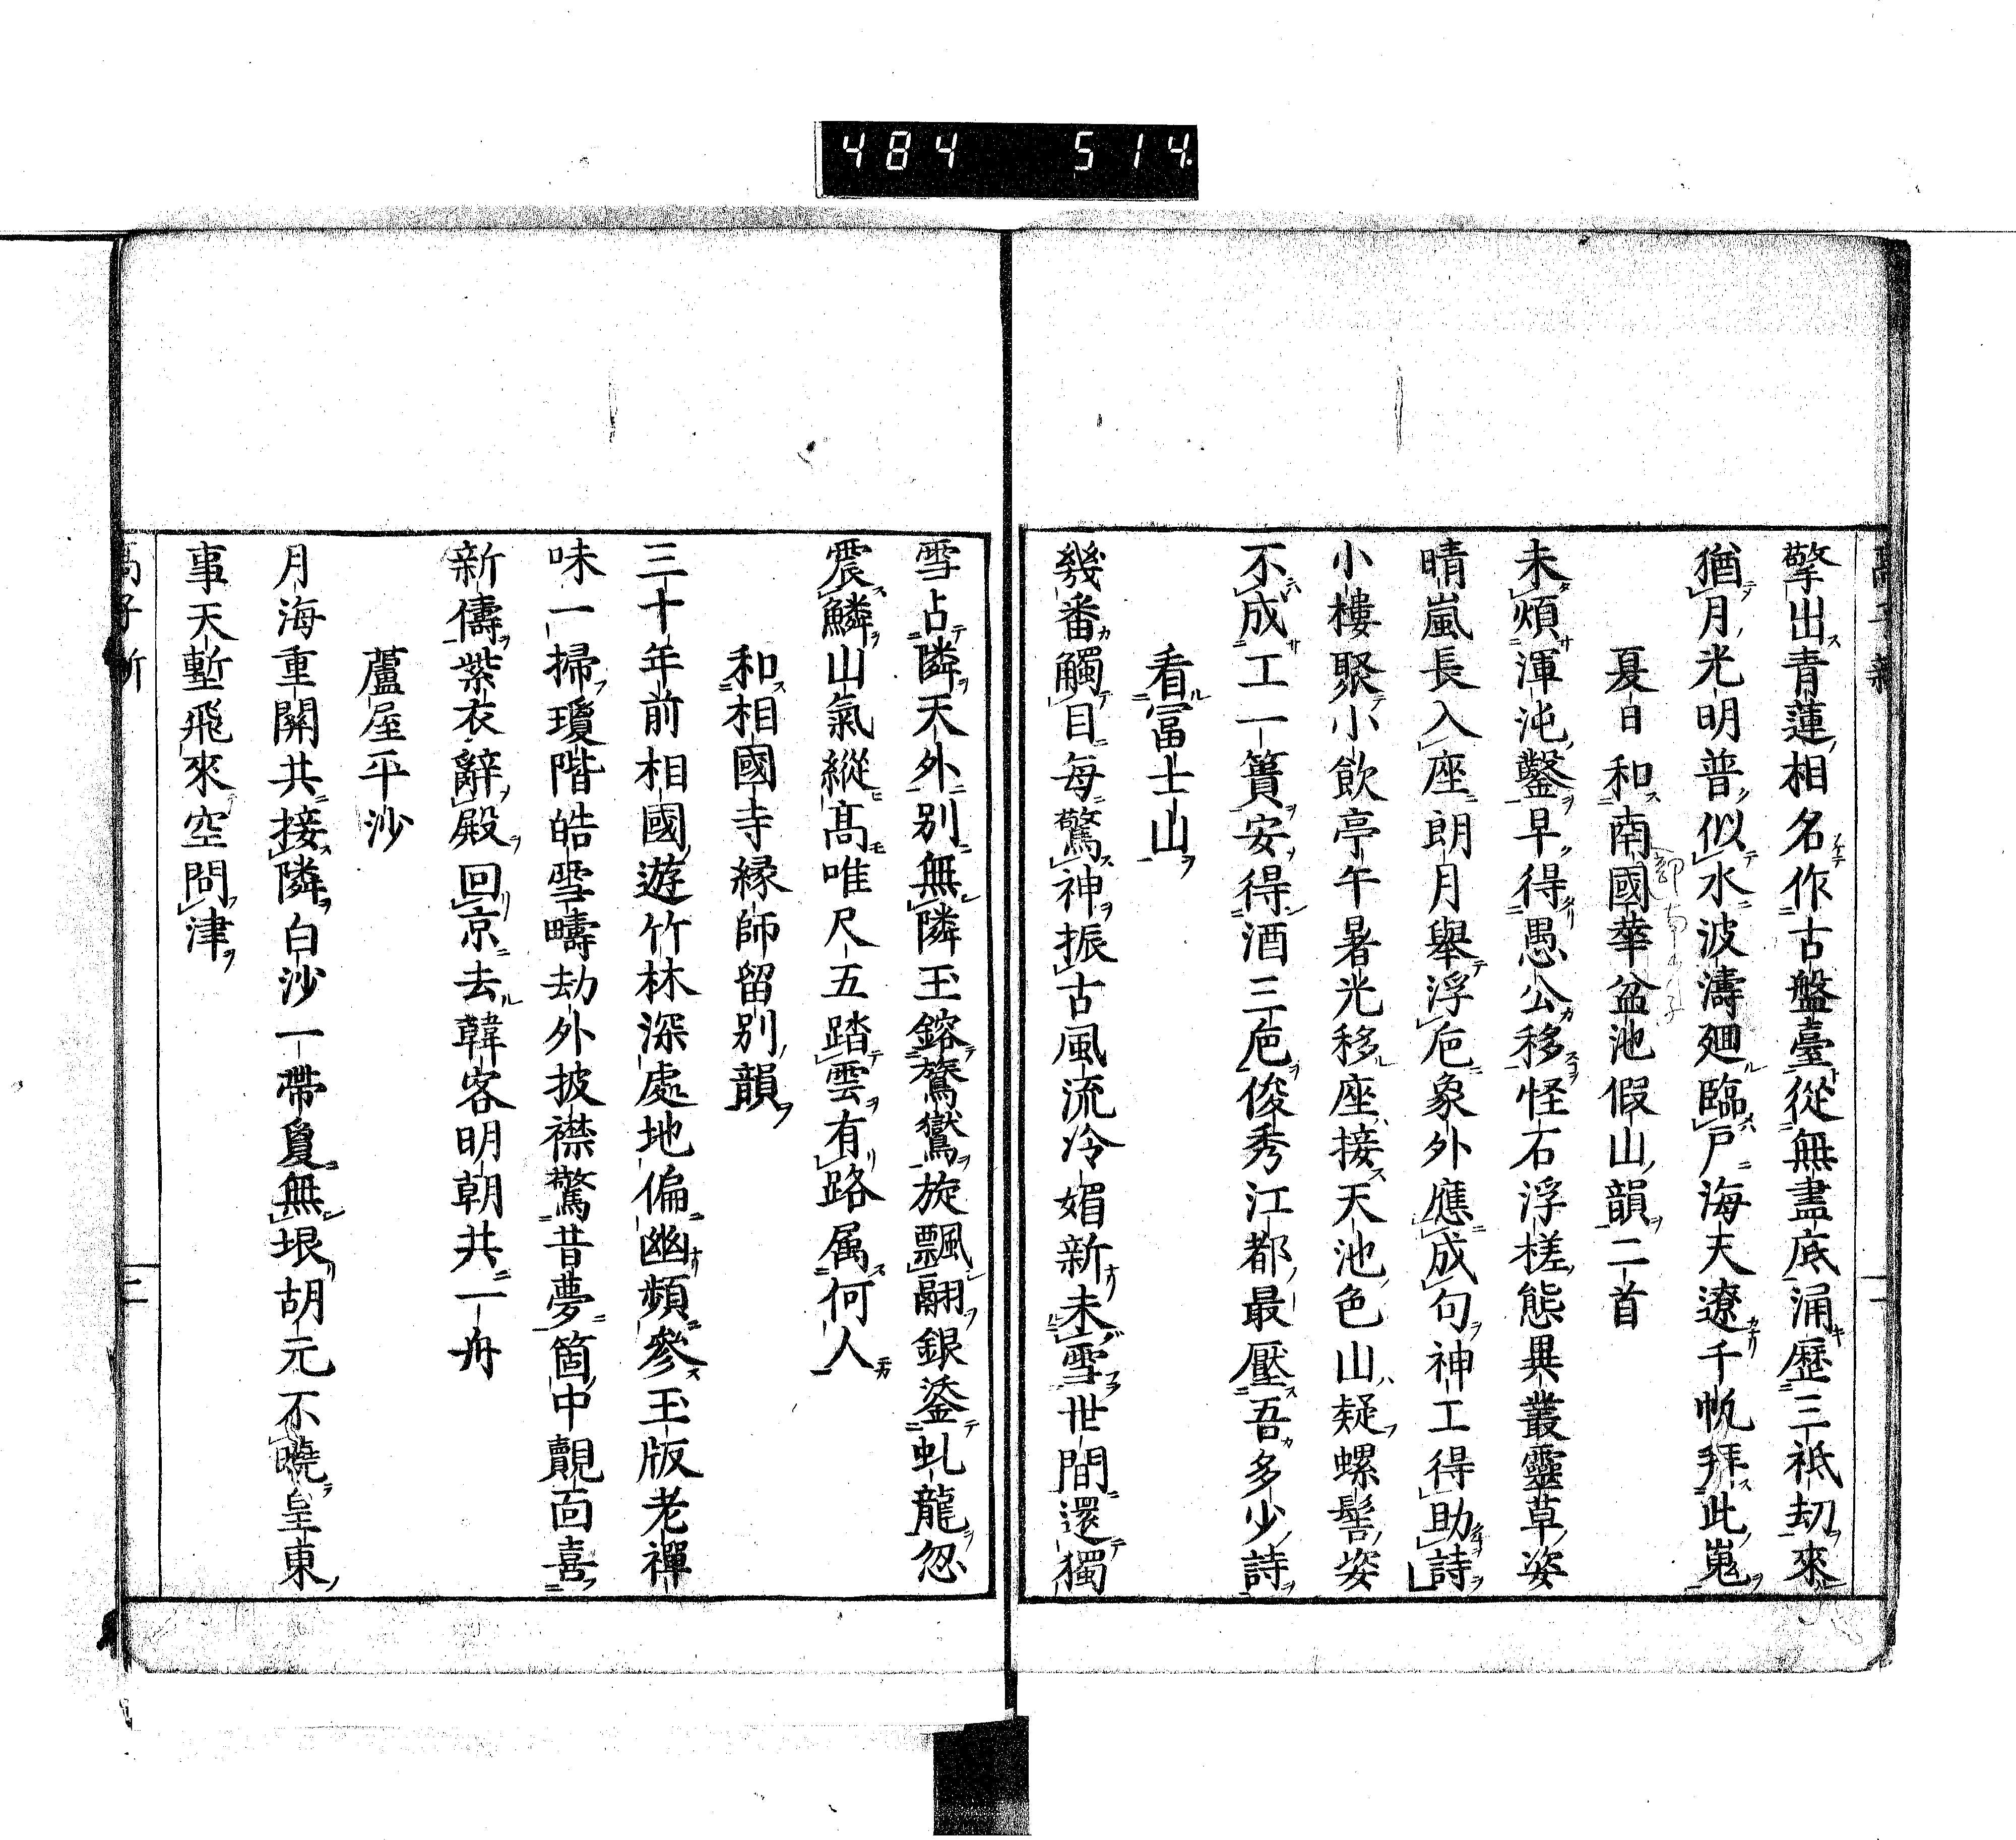 484 514
擎出青蓮相名作古盤臺從無盡底涌歷三祇劫來
猶月光明普似水波濤廻臨戸海天遼千帆拜此嵬
夏日和南國華盆池假山韻二首
未煩渾沌鑿早得愚公移怪石浮槎態異叢靈草姿
晴嵐長入座朗月舉浮卮象外應成句神工得助詩
小樓聚小飲亭午暑光移座接天池色山疑螺髻姿
不成工一簣安得酒三卮俊秀江都最壓吾多少詩
看冨士山
幾番觸目每驚神振古風流冷媚新未雪世間還獨
雪占隣天外別無隣玉鎔鶖鸞旋飄翮銀鋈虬龍忽
震鱗山氣縱髙唯尺五踏雲有路属何人
和相國寺緣師留別韻
三十年前相國遊竹林深處地偏幽頻參玉版老禪
味一掃瓊階皓雪疇劫外披襟驚昔夢箇中覿面喜
新儔紫衣辭殿回京去韓客明朝共一舟
蘆屋平沙
月海重關共接隣白沙一帶夐無垠胡元不曉皇東
事天塹飛來空問津
二